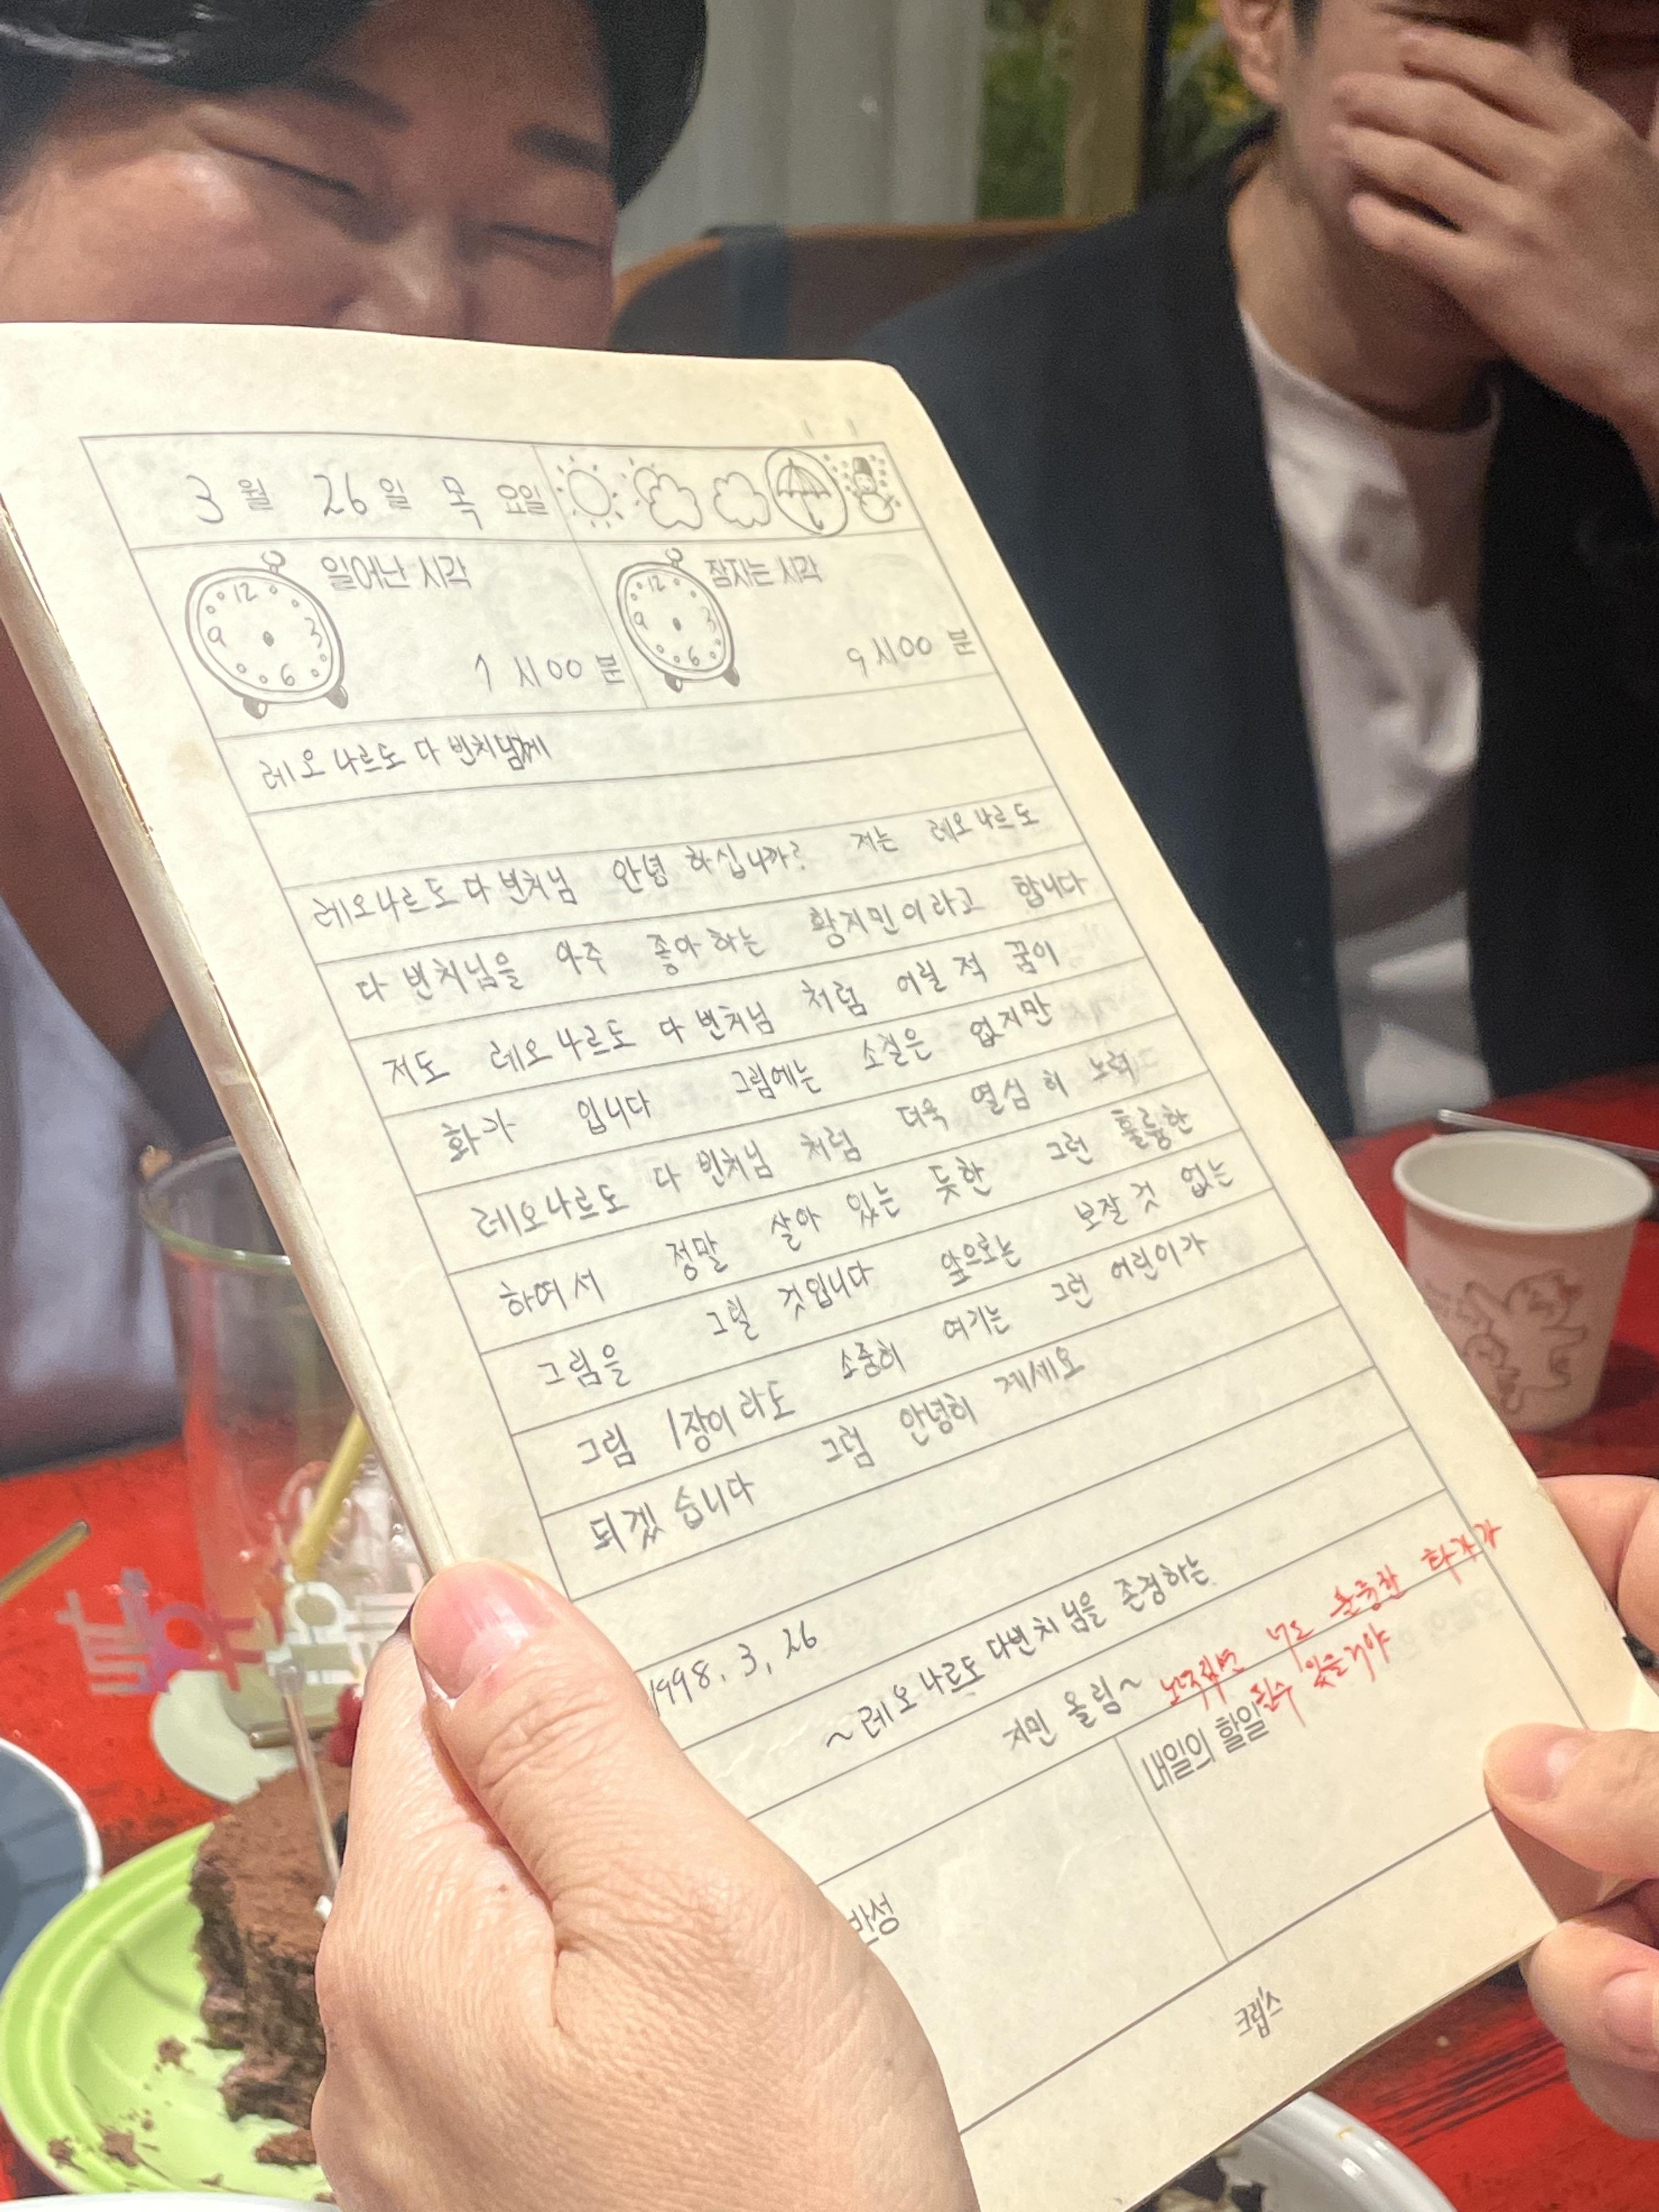 3 월 26 일 목 요일
일어난 시각
12
3
6
9
7 시 00 분
잠자는 시각
12
3
6
9
9 시 00 분
레오나르도 다 빈치님께
레오나르도 다 빈처님 안녕 하십니까? 저는 레오나르도
다 빈처님을 아주 좋아 하는 황지민이라고 합니다
저도 레오나르도 다 빈처님 처럼 어릴 적 꿈이
화가 입니다 그림에는 소질은 없지만
레오나르도 다 빈처님 처럼 더욱 열심 히 노력
하여서 정말 살아 있는 듯한 그런 훌륭한
그림을 그릴 것입니다 앞으로는 보잘 것 없는
그림 1장이라도 소중히 여기는 그런 어린이가
되겠 습니다 그럼 안녕히 계세요
1998. 3. 26
~레오나르도 다빈치님을 존경하는
지민 올림~
노력하면 너도 훌륭한 화가가
될수 있을거야
반성
내일의 할일
크립스